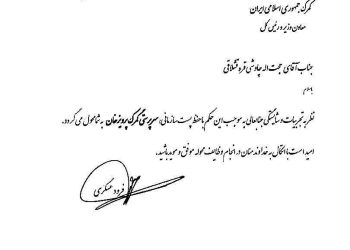 گمرک جمهوری اسلامی ایران
معاون وزیر و رئیس کل
جناب آقای حجت اله چاوشی قره قشلاقی
با سلام
نظر به تجربیات و شایستگی جنابعالی به موجب این حکم با حفظ پست سازمانی، سرپرستی گمرک پرویزخان به شما محول می گردد.
امید است با اتکال به خداوند منان در انجام وظایف محوله موفق و موید باشید.
فرود عسکری